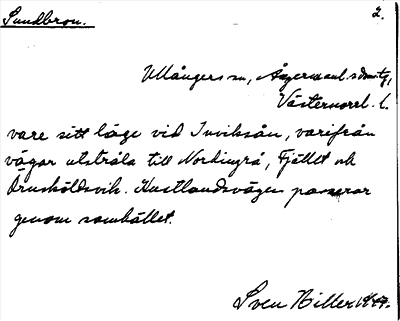 Sundbron. 2.
Ullångers sn, Ångermanl. s domstg,
Västernorrl. l.
vare sitt läge vid Inviksån, varifrån
vägar utstråla till Nordingrå, Fjället och
Örnsköldsvik. Kustlandsvägen passerar
genom samhället.
Sven Hiller